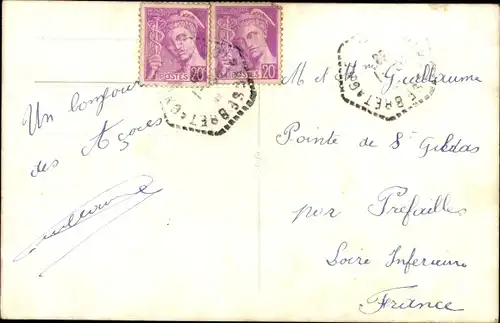 POSTES 20
POSTES 20
BRETAGNE
BRETAGNE
Un bonjour
des Açores
M et Mme Guillaume
Pointe de St Gildas
par Prefailles
Loire Inferieure
France